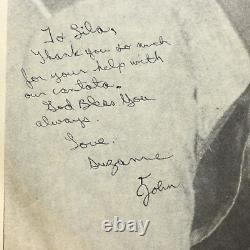 To Lila,
Thank you so much
for your help with
our cantata.
God Bless You
always.
Love,
Suzanne
John
ebay